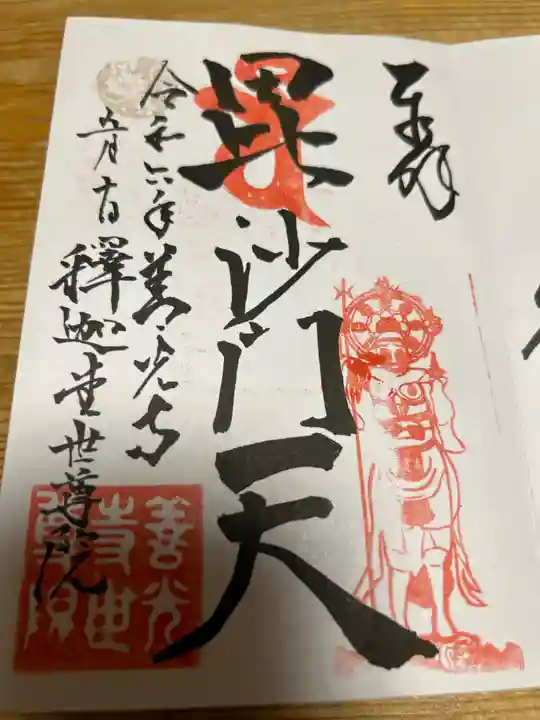 奉拝
毘沙門天
令和六年 善光寺
五月十日 釋迦堂世尊院
善光
寺世
尊院